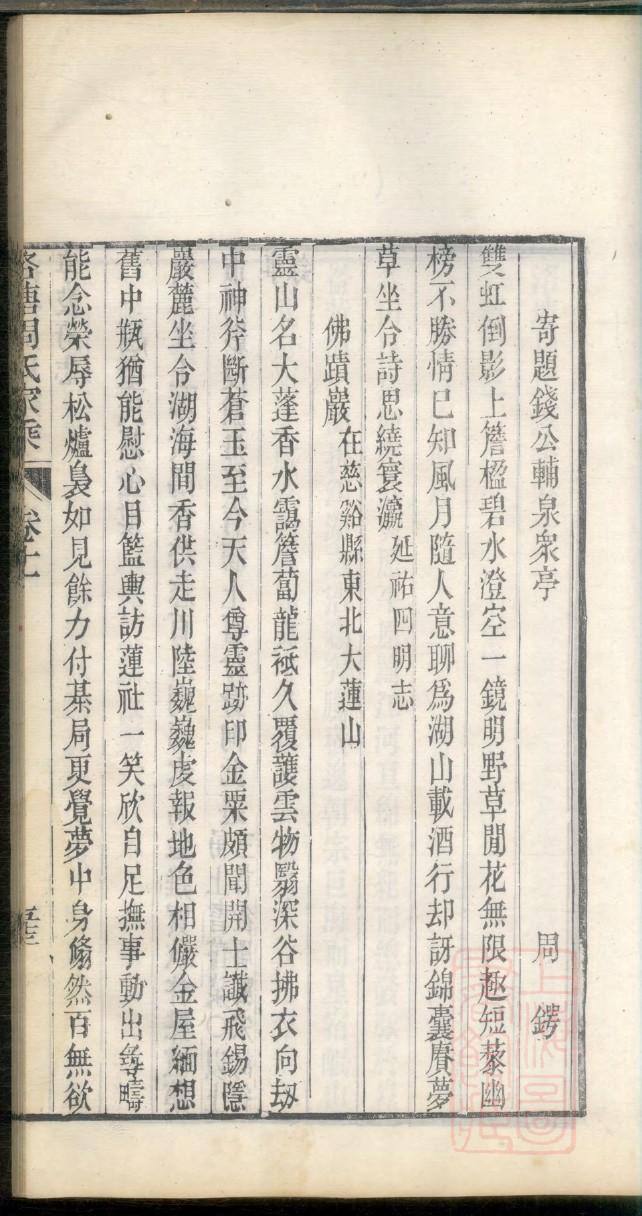 寄題錢公輔泉衆亭 周鍔
雙虹倒影上簷楹碧水澄空一鏡明野草閒花無限趣短藜幽
榜不勝情已知風月隨人意聊爲湖山載酒行却訝錦囊賡夢
草坐令詩思繞寰瀛延祐四明志
佛蹟巖在慈谿縣東北大蓬山
靈山名大蓬香水靄簷蔔龍祗久覆護雲物翳深谷拂衣向刼
中神斧斷蒼玉至今天人尊靈跡印金粟頗聞開士讖飛錫隱
巖麓坐令湖海間香供走川陸巍巍虔報地色相儼金屋緬想
舊中瓶猶能慰心目籃輿訪蓮社一笑欣自足撫事動出疇
能念榮辱松爐裊如見餘力付棊局更覺夢中身翛然百無欲
周氏家乘 卷十二 五三